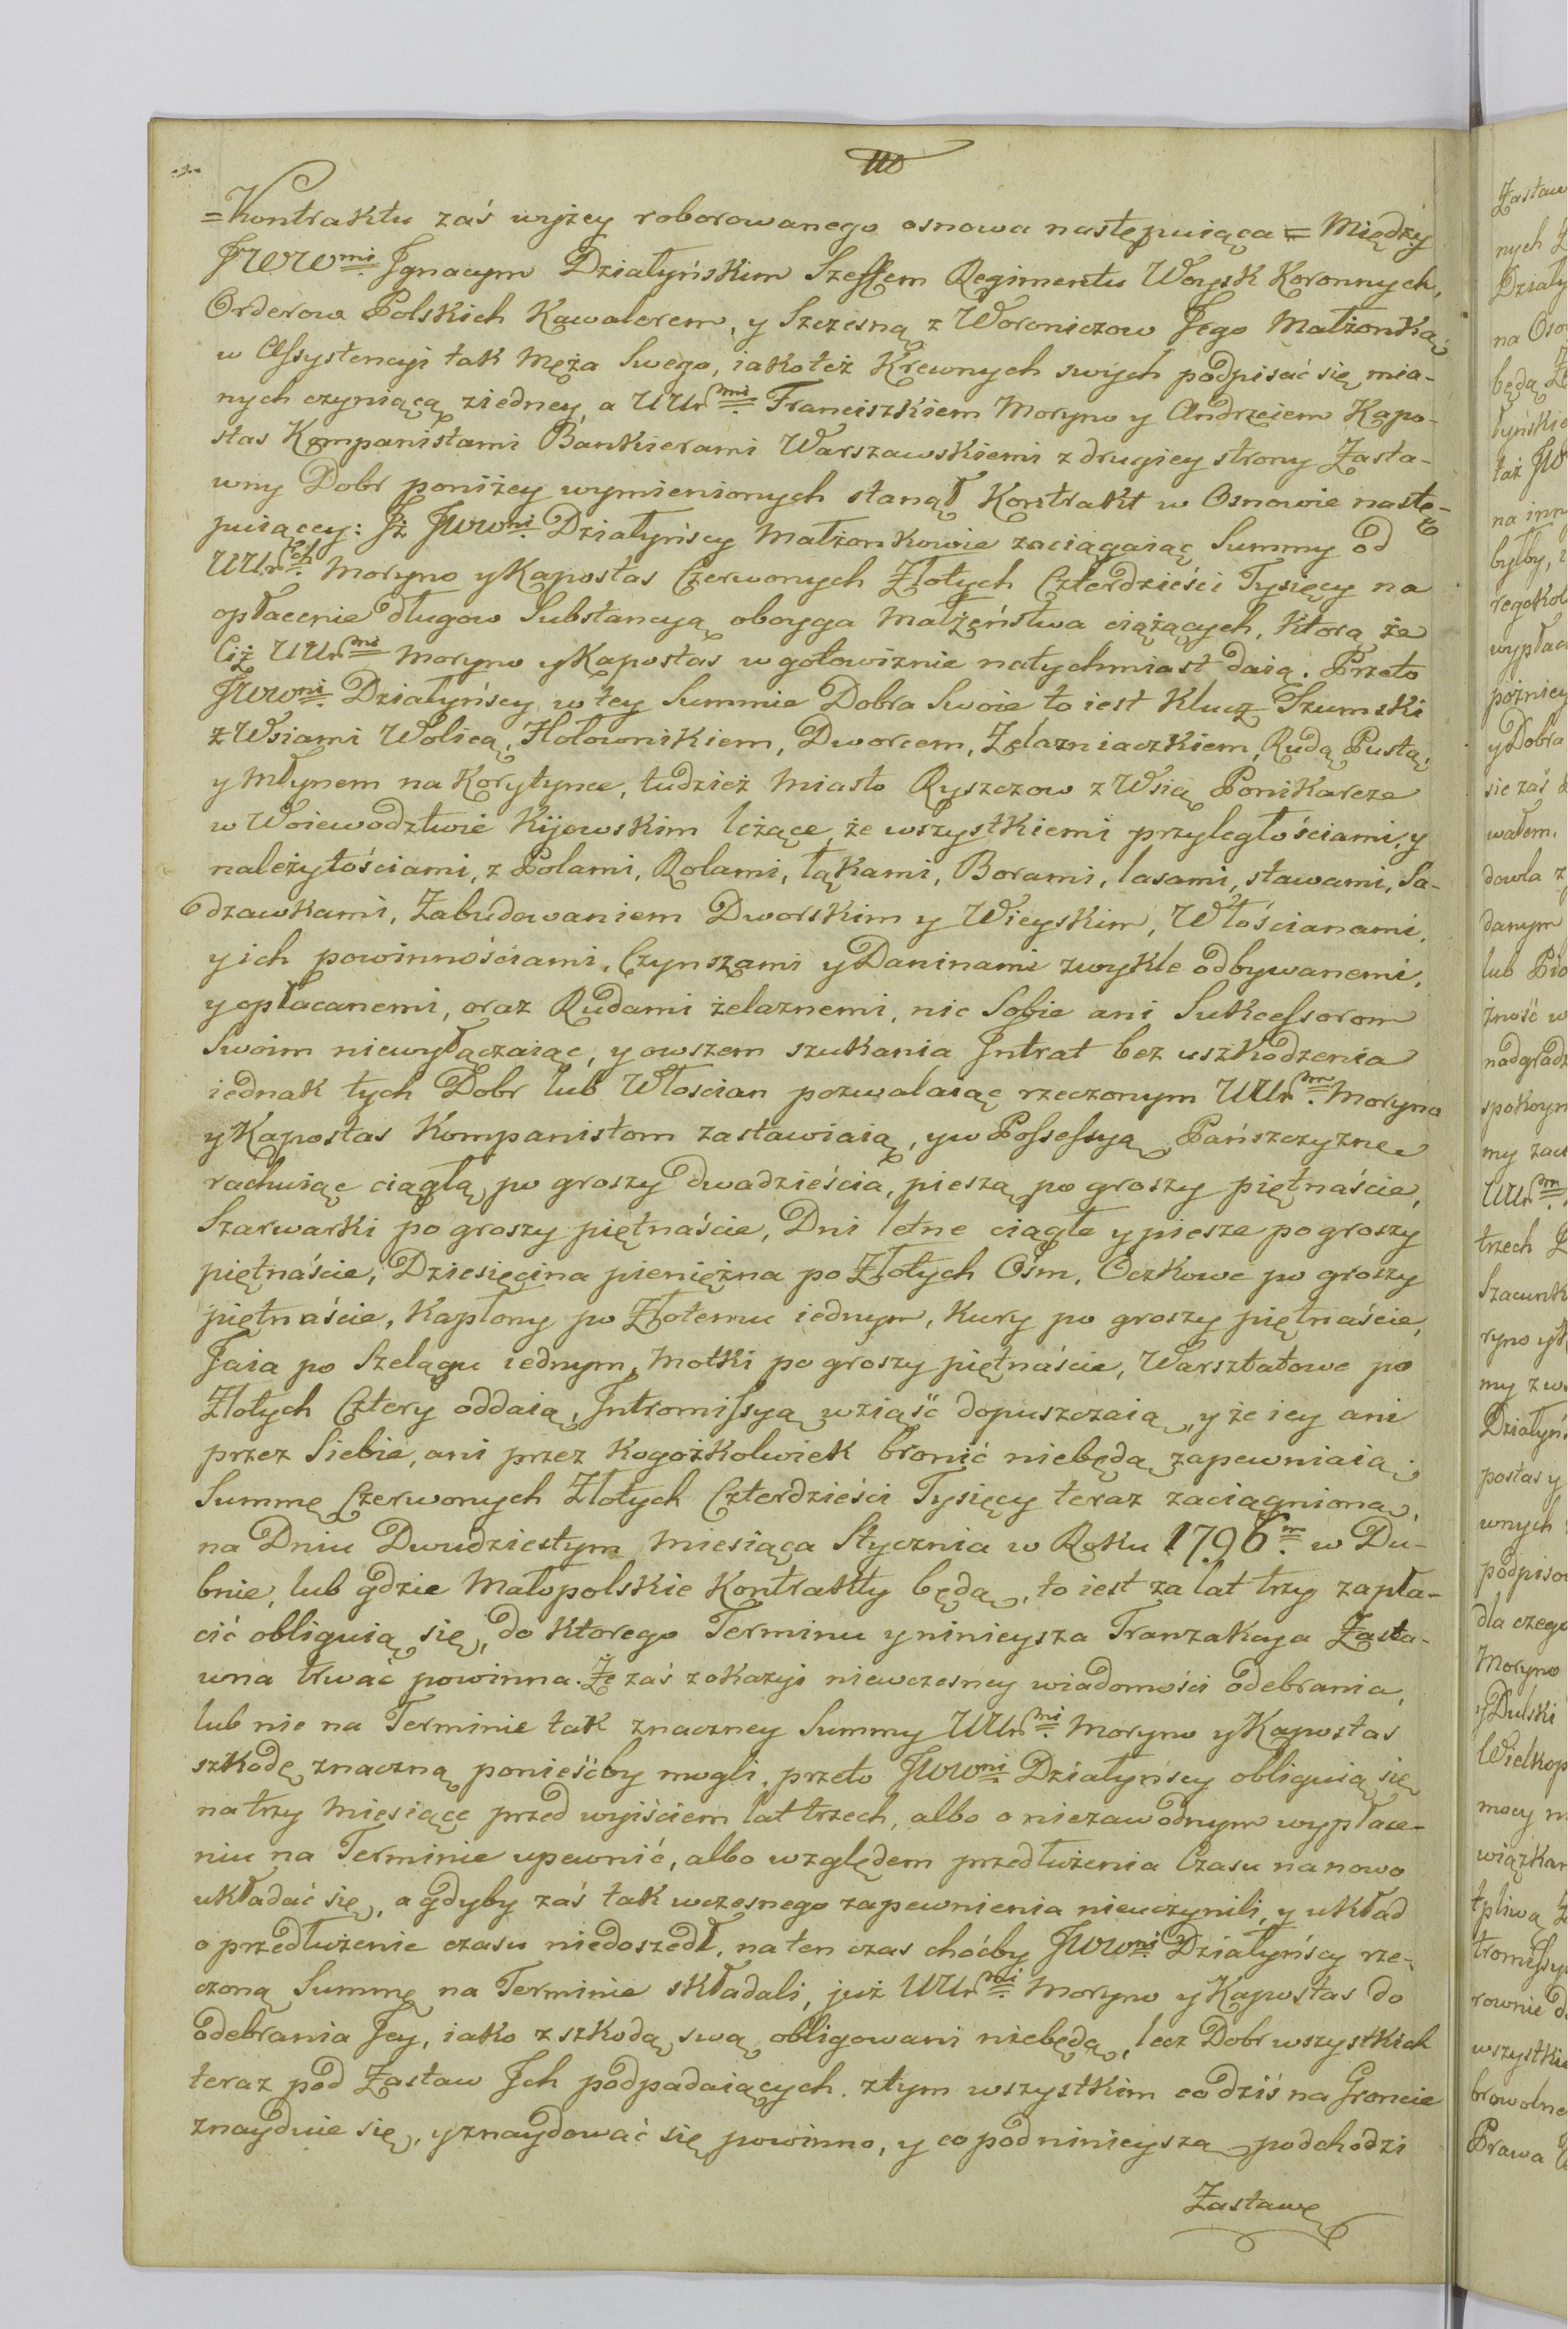 =Kontraktu zaś wyżey roborowanego osnowa następuiąca = Między
JWW^mi. Ignacym Działyńskim Szeffem Regimentu Woysk Koronnych,
Orderow Polskich Kawalerem, y Szczesną z Woroniczow Jego Małżonką
w Assystencyi tak Męża Swego, iakoteż Krewnych swych podpisać się mia-
nych czyniącą ziedney, a UUr^mi. Franciszkiem Moryno y Andrzeiem Kapo-
stas Kompanistami Bankierami Warszawskiemi z drugiey strony Zasta-
wny Dobr poniżey wymienionych stanął Kontrakt w Osnowie nastę-
puiącey: Iż JWW^ni. Działyńscy Małżonkowie zaciągaiąc Summy od
UUr^ch. Moryno y Kapostas Czerwonych Złotych Czterdzieści Tysięcy na
opłacenie długow Substancyą oboyga Małżeństwa ciążących, którą że
Ciż UUr^mi Moryno y Kapostas w gotowiznie natychmiast daią. Przeto
JWW^ni. Działyńscy w tey Summie Dobra Swoie to iest Klucz Szumski
z Wsiami Wolicą, Hołownikiem, Dworcem, Żelazniaczkiem, Rudą Pustą,
y Młynem na Korytynce, tudzież Miasto Ryszczow z Wsią Ponikarcze
w Woiewodztwie Kijowskim leżące, że wszystkiemi przyległościami, y
należytościami, z Polami, Rolami, łąkami, Borami, lasami, stawami, Sa-
dzawkami, Zabudowaniem Dworskim y Wieyskim, Włościanami,
y ich powinnościami, Czynszami y Daninami zwykle odbywanemi,
y opłacanemi, oraz Rudami żelaznemi, nic Sobie ani Sukcessorom
Swoim niewyłączaiąc, y owszem szukania Intrat bez uszkodzenia
iednak tych Dobr lub Włoscian pozwalaiąc rzeczonym UUr^m. Moryno
y Kapostas Kompanistom zastawiaią, y w Possessyą Pańszczyznę
rachuiąc ciągłą po groszy dwadzieścia, pieszą po groszy piętnaście,
Szarwarki po groszy piętnaście, Dni letne ciągłe y piesze po groszy
piętnaście, Dziesięcina pieniężna po Złotych Ośm, Oczkowe po groszy
piętnaście, Kapłony po Złotemu iednym, Kury po groszy piętnaście,
Jaia po Szelągu iednym, Motki po groszy piętnaście, Warsztatowe po
Złotych Cztery oddaią, Intromissyą wziąść dopuszczaią, y że iey ani
przez Siebie, ani przez Kogożkolwiek bronić niebędą zapewniaią;
Summę Czerwonych Złotych Czterdzieści Tysięcy teraz zaciągnioną,
na Dniu Dwudziestym Miesiąca Stycznia w Roku 1796.^m w Du-
bnie, lub gdzie Małopolskie Kontrakty będą, to iest za lat trzy zapła-
cić obliguią się, do ktorego Terminu y ninieysza Tranzakcya Zasta-
wna trwać powinna. Że zaś z okazyi niewczesney wiadomości odebrania,
lub nie na Terminie tak znaczney Summy UUr^mi. Moryno y Kapostas
szkodę znaczną ponieśćby mogli, przeto JWW^ni. Działyńscy obliguią się
na trzy Miesiące przed wyiściem lat trzech, albo o niezawodnym wypłace-
niu na Terminie upewnić, albo względem przedłużenia Czasu na nowo
układać się, a gdyby zaś tak wczesnego zapewnienia nieuczynili, y układ
o przedłużenie czasu niedoszedł, na ten czas choćby JWW^ni. Działyńscy rze-
czoną Summę na Terminie składali, już UUr^mi. Moryno y Kapostas do
odebrania Jey, iako z szkodą swą obligowani niebędą, lecz Dobr wszystkich
teraz pod Zastaw Ich podpadaiących, z tym wszystkim co dziś na Groncie
znayduie się, y znaydować się powinno, y co pod ninieyszą podchodzi
Zastawę